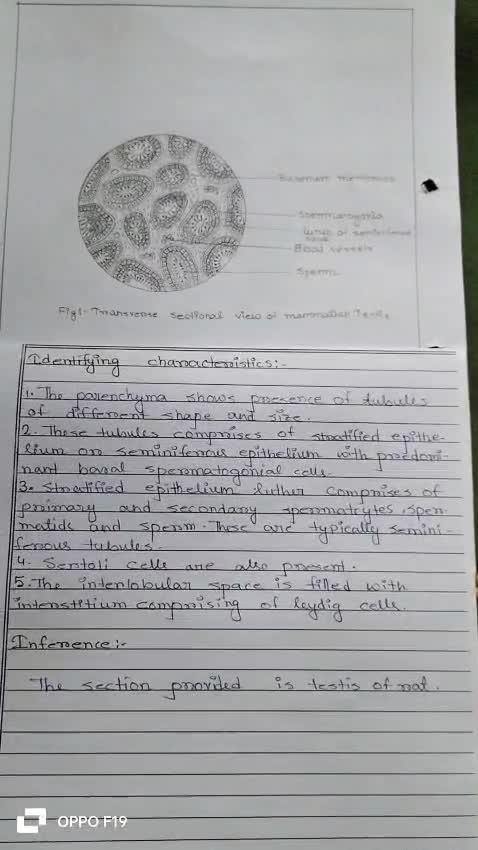 Basement membrane
Spermatogonia
Lumen of seminiferous
Blood vessels
Sperms
Fig1- Transverse sectional view of mammalian Testis
Identifying characteristics:-
1. The parenchyma shows presence of tubules
of different shape and size.
2. These tubules comprises of stratified epithe-
lium or seminiferous epithelium with predomi-
nant basal spermatogonial cells.
3. Stratified epithelium further comprises of
primary and secondary spermatcytes, sper-
matids and sperm. These are typically semini-
ferous tubules.
4. Sertoli cells are also present.
5. The interlobular space is filled with
interstitium comprising of leydig cells.
Inference:-
The section provided is testis of rat.
OPPO F19